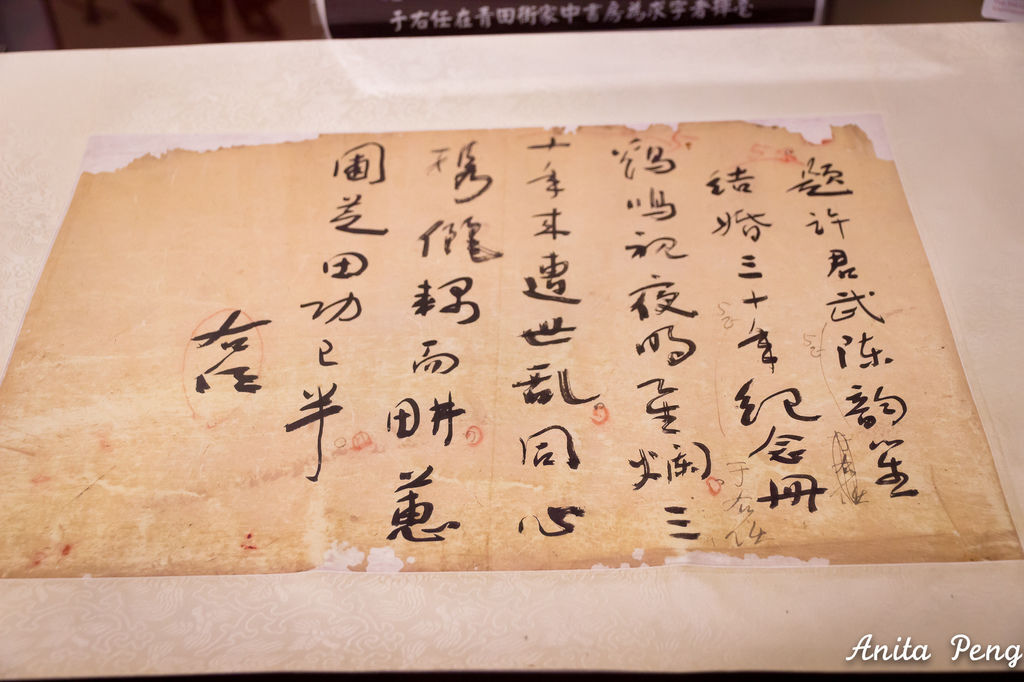 于右任在青田街家中書房為求字者揮毫
題許君武陳韻篁
結婚三十年紀念冊
于右任
鷄鳴視夜明星爛三
十年来遭世乱同心
携儷耦而畊蕙
圃芝田功已半
右任
Anita Peng